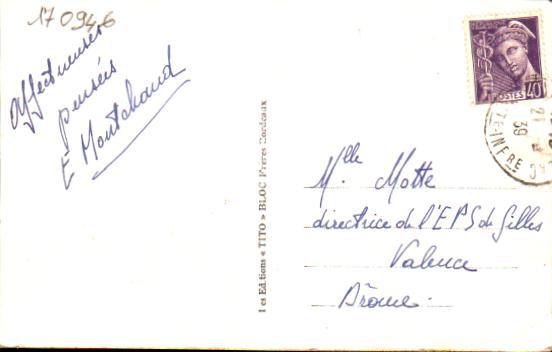 170946
Affectueuses
pensées
E Montchaud
Les Editions « TITO » BLOC Frères Bordeaux
POSTES 40
21
39
TE-INFRE
Mlle Motte
directrice de l'EPS de filles
Valence
Drôme.